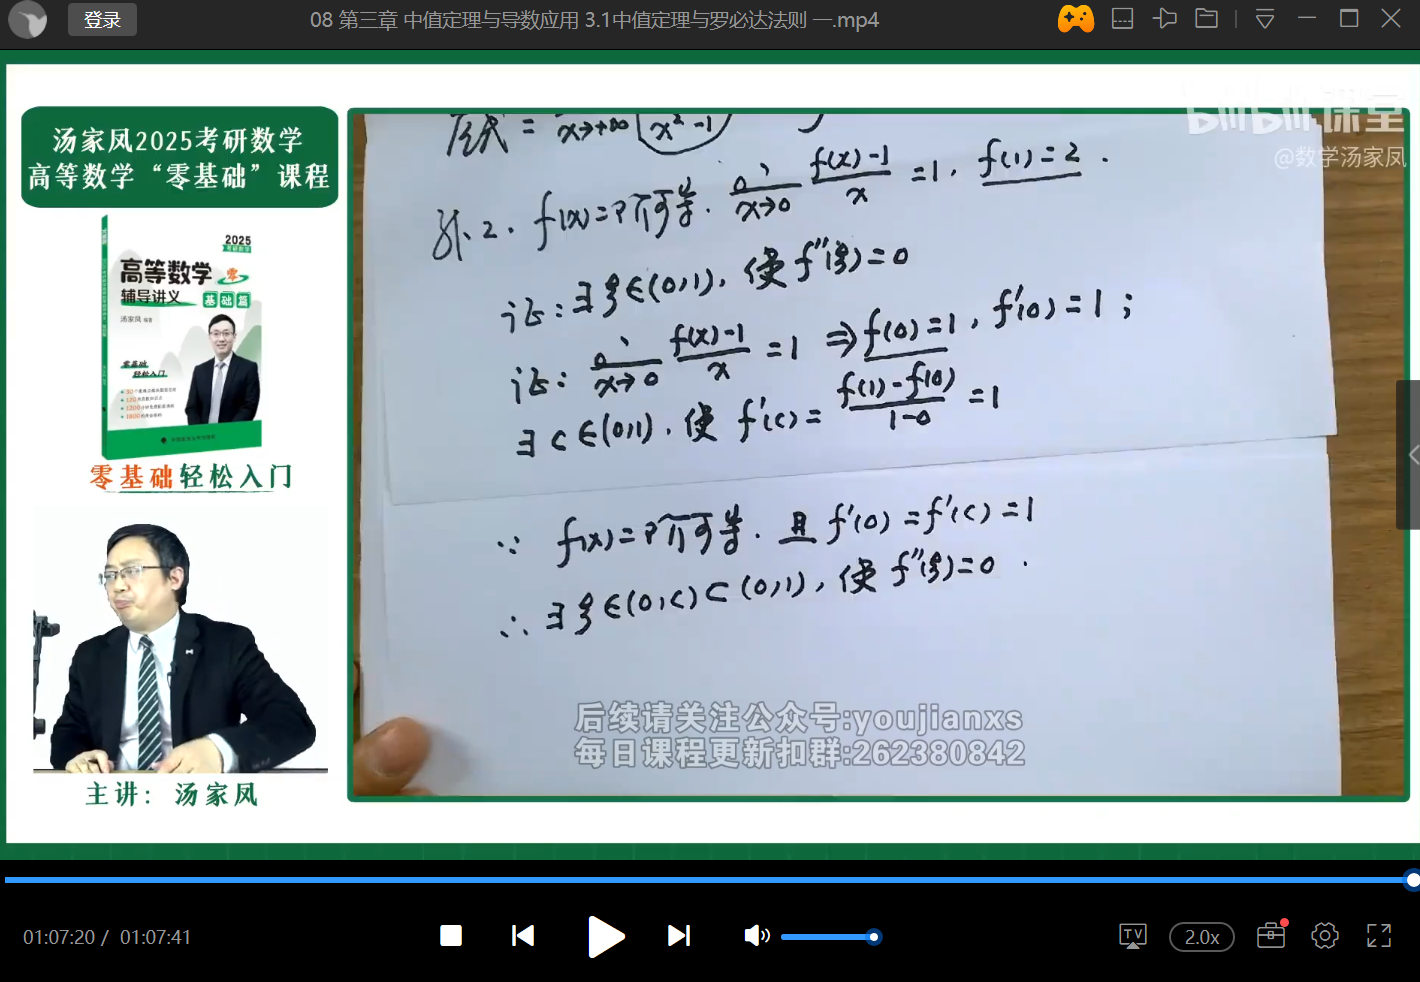 登录
08 第三章 中值定理与导数应用 3.1中值定理与罗必达法则 一.mp4
汤家凤2025考研数学
高等数学“零基础”课程
2025
高等数学 零
辅导讲义 基础篇
汤家凤 编著
零基础
轻松入门
零基础轻松入门
主讲：汤家凤
bilibili课堂
@数学汤家凤
原式 = x→+∞ x²-1
例2. f(x)二阶可导. lim x→0 f(x)-1 / x =1, f(1)=2.
证: ∃ξ∈(0,1), 使 f''(ξ)=0
证: lim x→0 f(x)-1 / x =1 ⇒ f(0)=1, f'(0)=1;
∃c∈(0,1), 使 f'(c)= f(1)-f(0) / 1-0 =1
∵ f(x)二阶可导. 且 f'(0)=f'(c)=1
∴ ∃ξ∈(0,c)⊂(0,1), 使 f''(ξ)=0.
后续请关注公众号:youjianxs
每日课程更新扣群:262380842
01:07:20 / 01:07:41
TV
2.0x